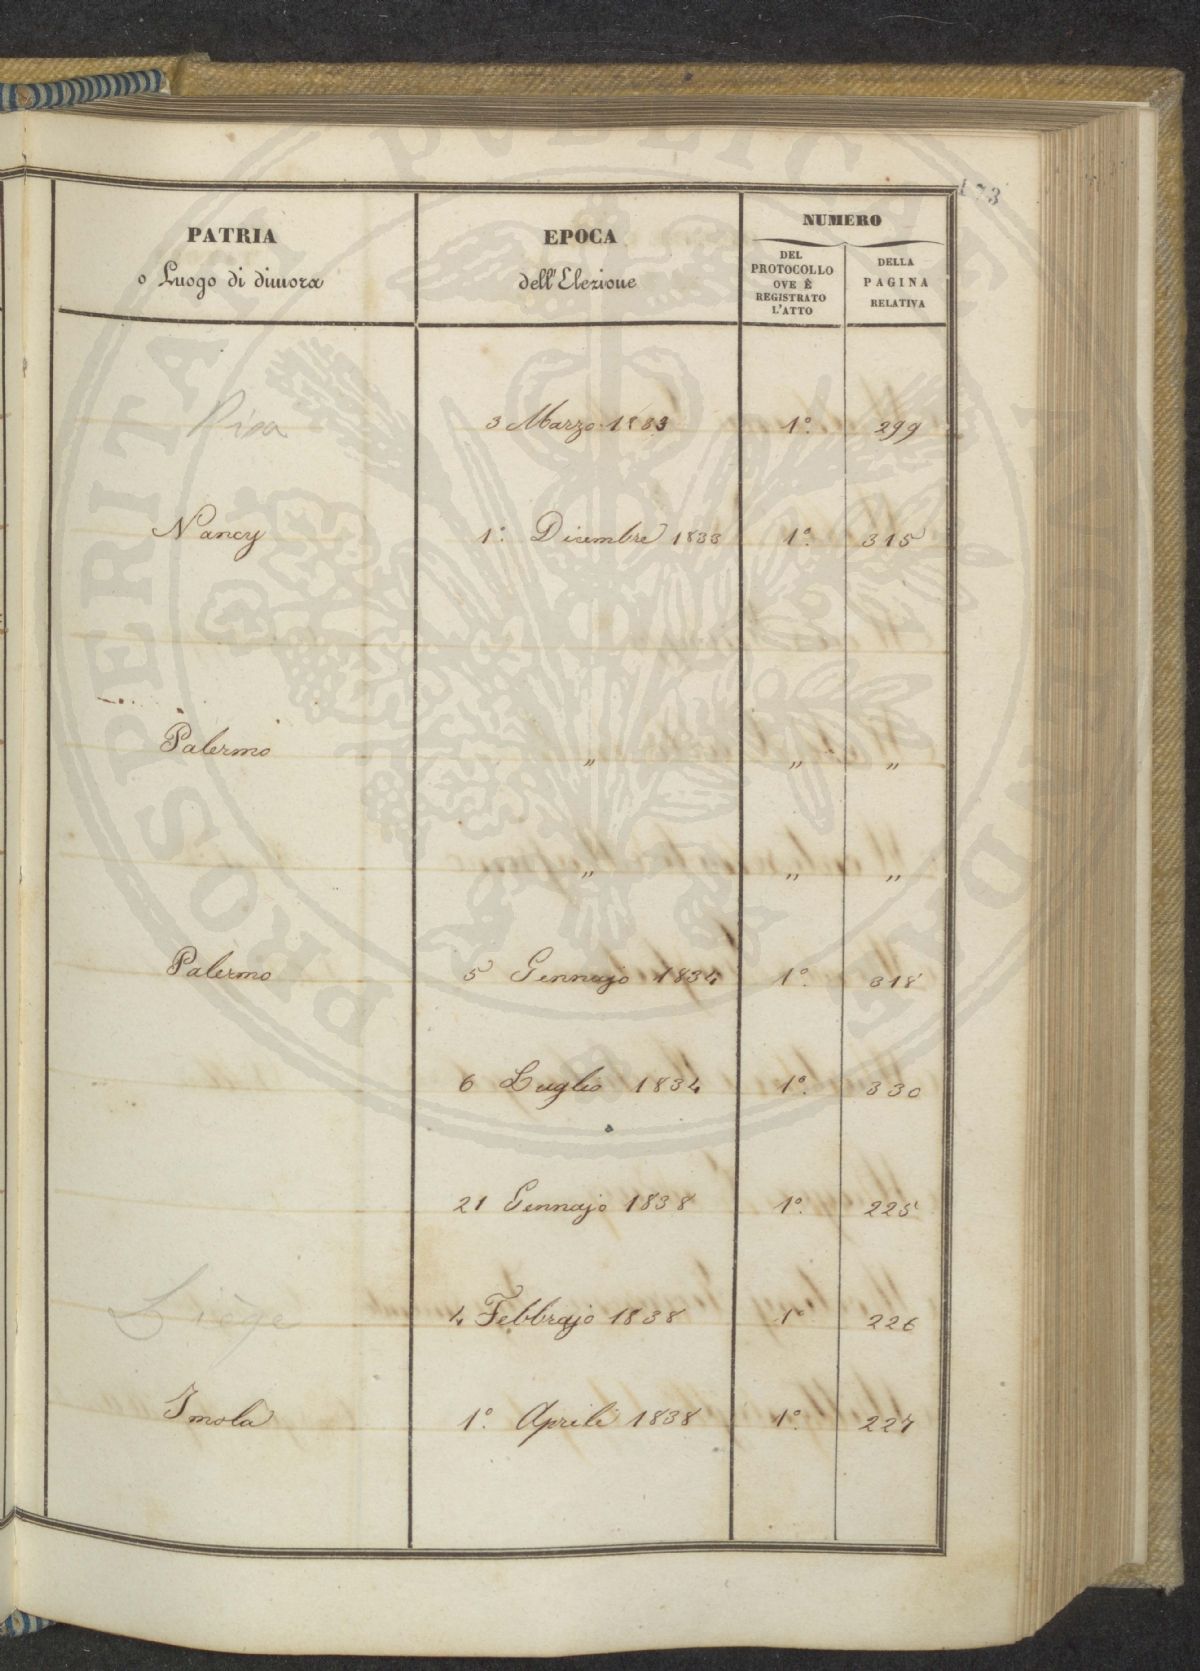 173
PATRIA
o Luogo di dimora
EPOCA
dell'Elezione
NUMERO
DEL
PROTOCOLLO
OVE È
REGISTRATO
L'ATTO
DELLA
PAGINA
RELATIVA
Pisa 3 Marzo 1833 1º. 299
Nancy 1º. Dicembre 1833 1º. 315
Palermo " " "
" " "
Palermo 5 Gennajo 1834 1º. 318
6 Luglio 1834 1º. 330
21 Gennajo 1838 1º. 225
Liège 4 Febbrajo 1838 1º 226
Imola 1º. Aprile 1838 1º. 227
PROSPERITATI PUBLICAE